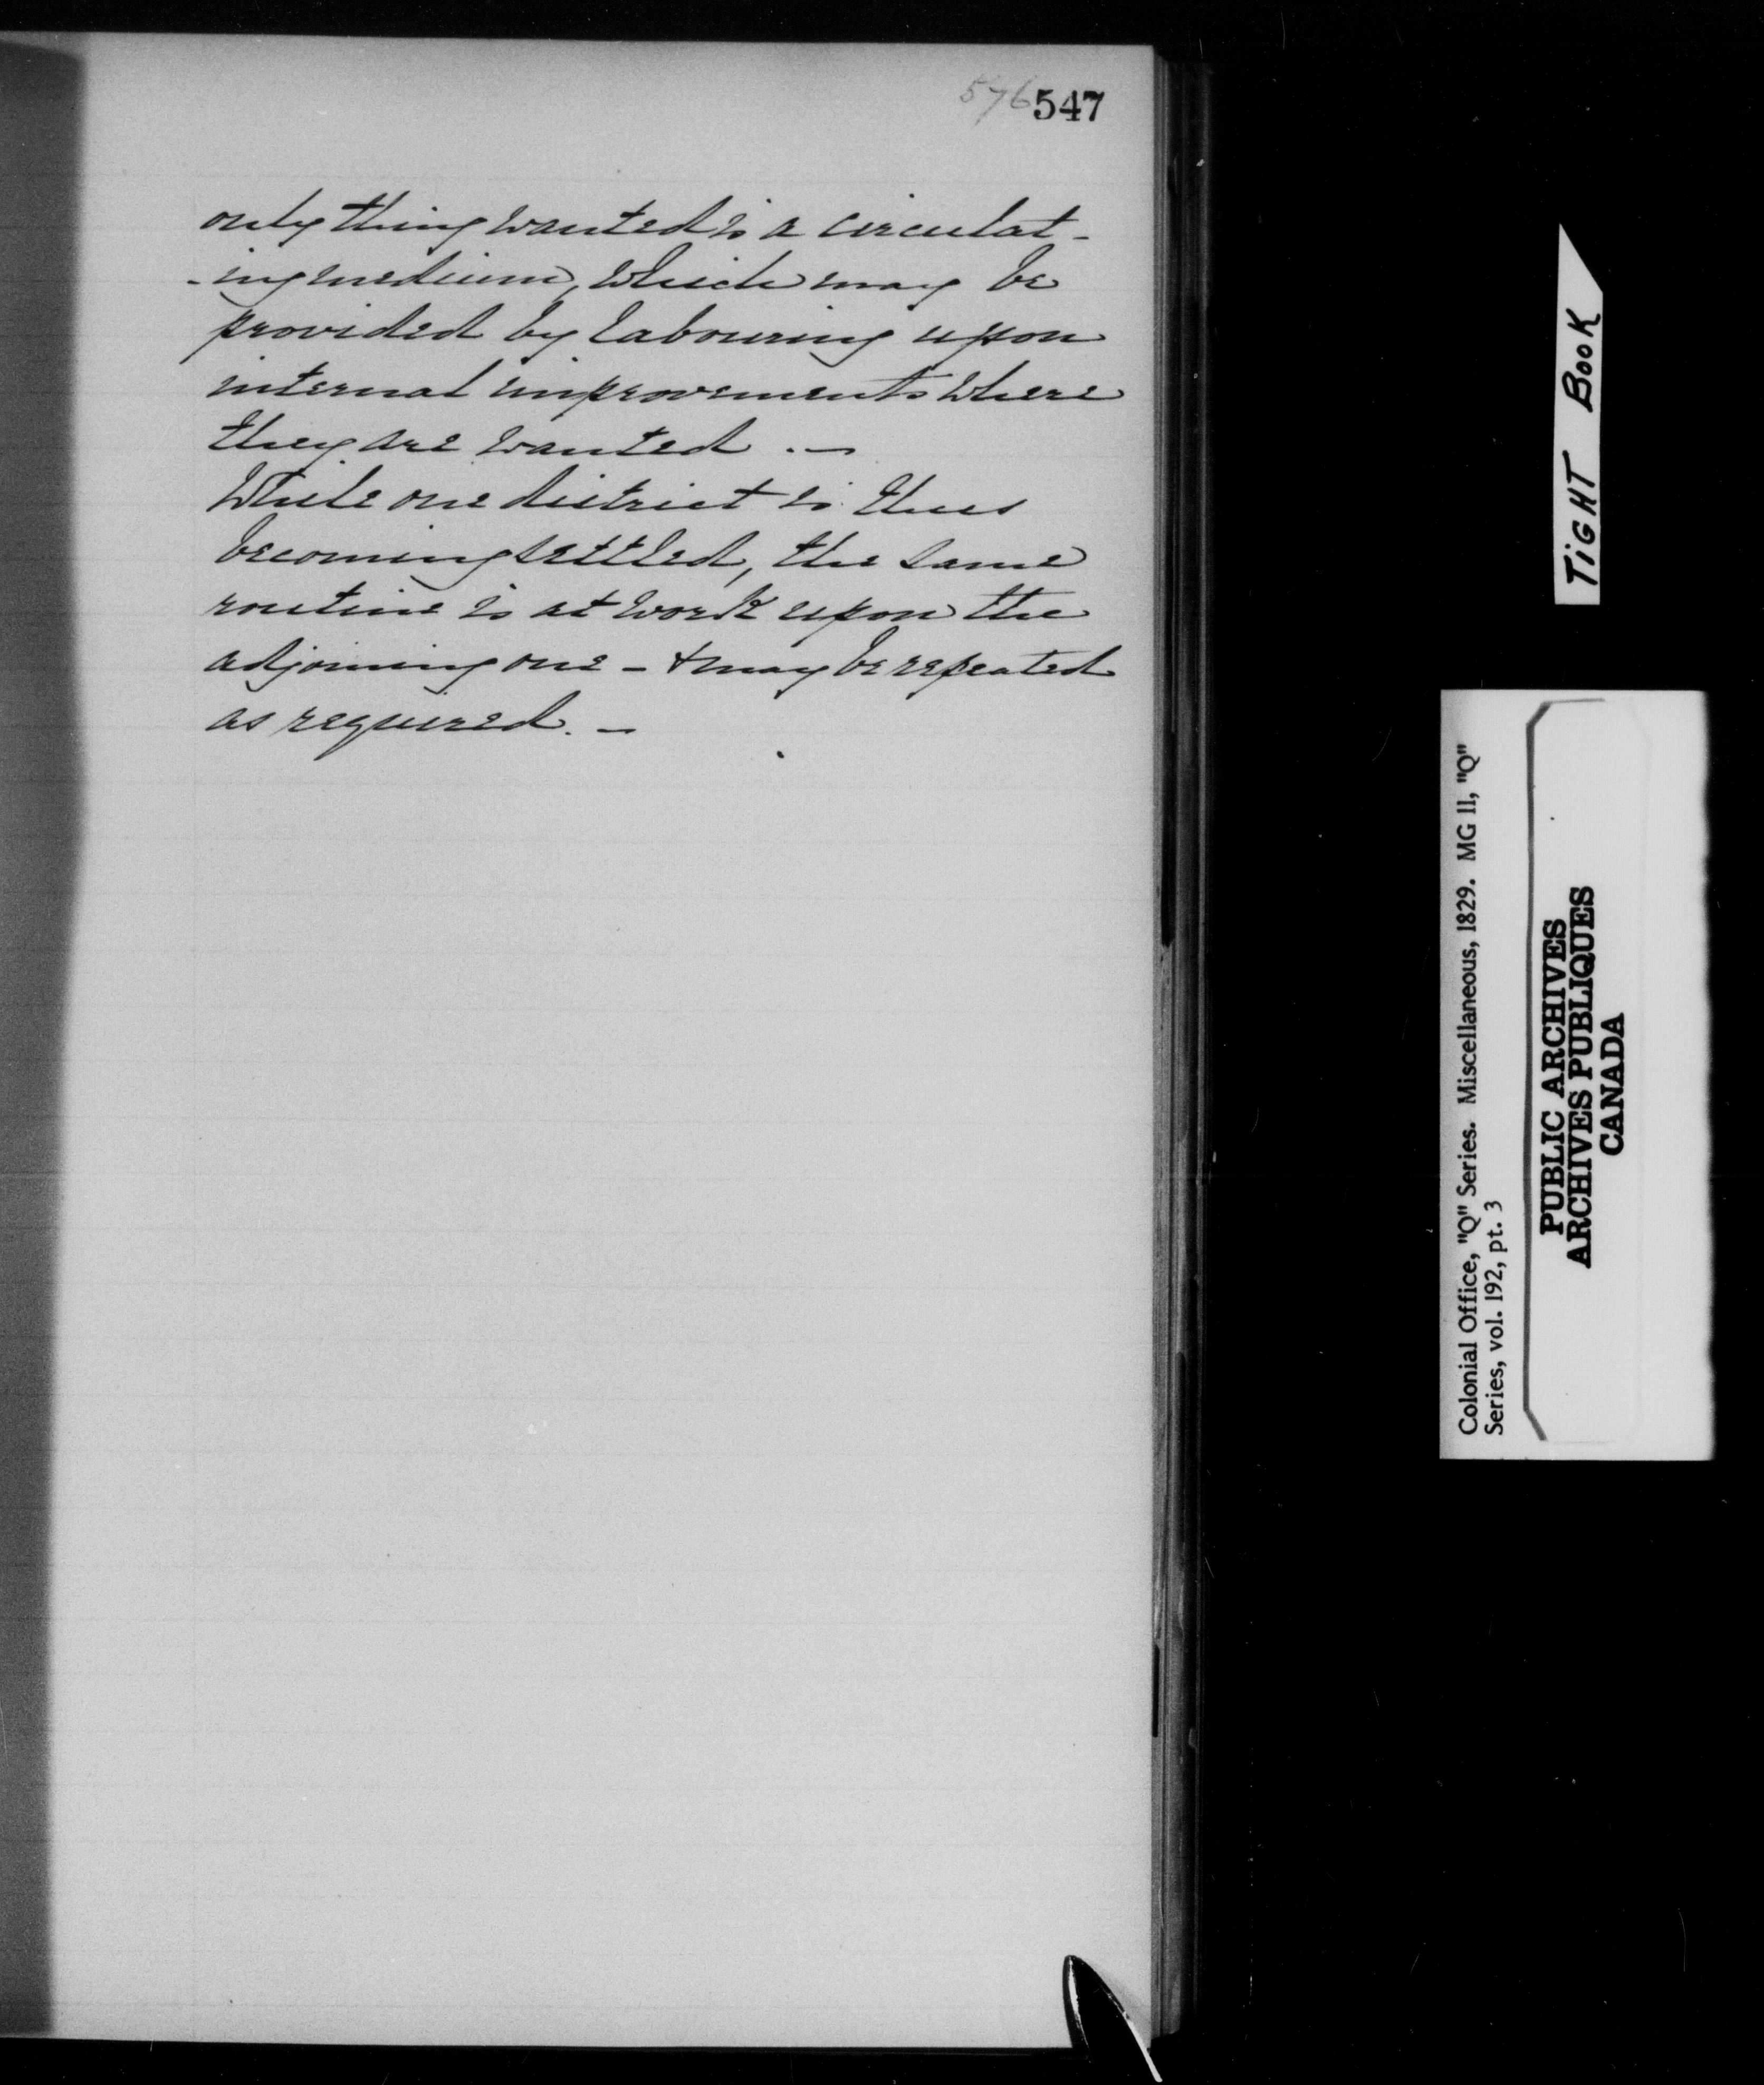 576 547
only thing wanted is a circulat-
-ing medium, which may be
provided by labouring upon
internal improvements where
they are wanted . —
While one district is thus
becoming settled, the same
routine is at work upon the
adjoining one - & may be repeated
as required. —
TIGHT BOOK
Colonial Office, "Q" Series. Miscellaneous, 1829. MG 11, "Q"
Series, vol. 192, pt. 3
PUBLIC ARCHIVES
ARCHIVES PUBLIQUES
CANADA